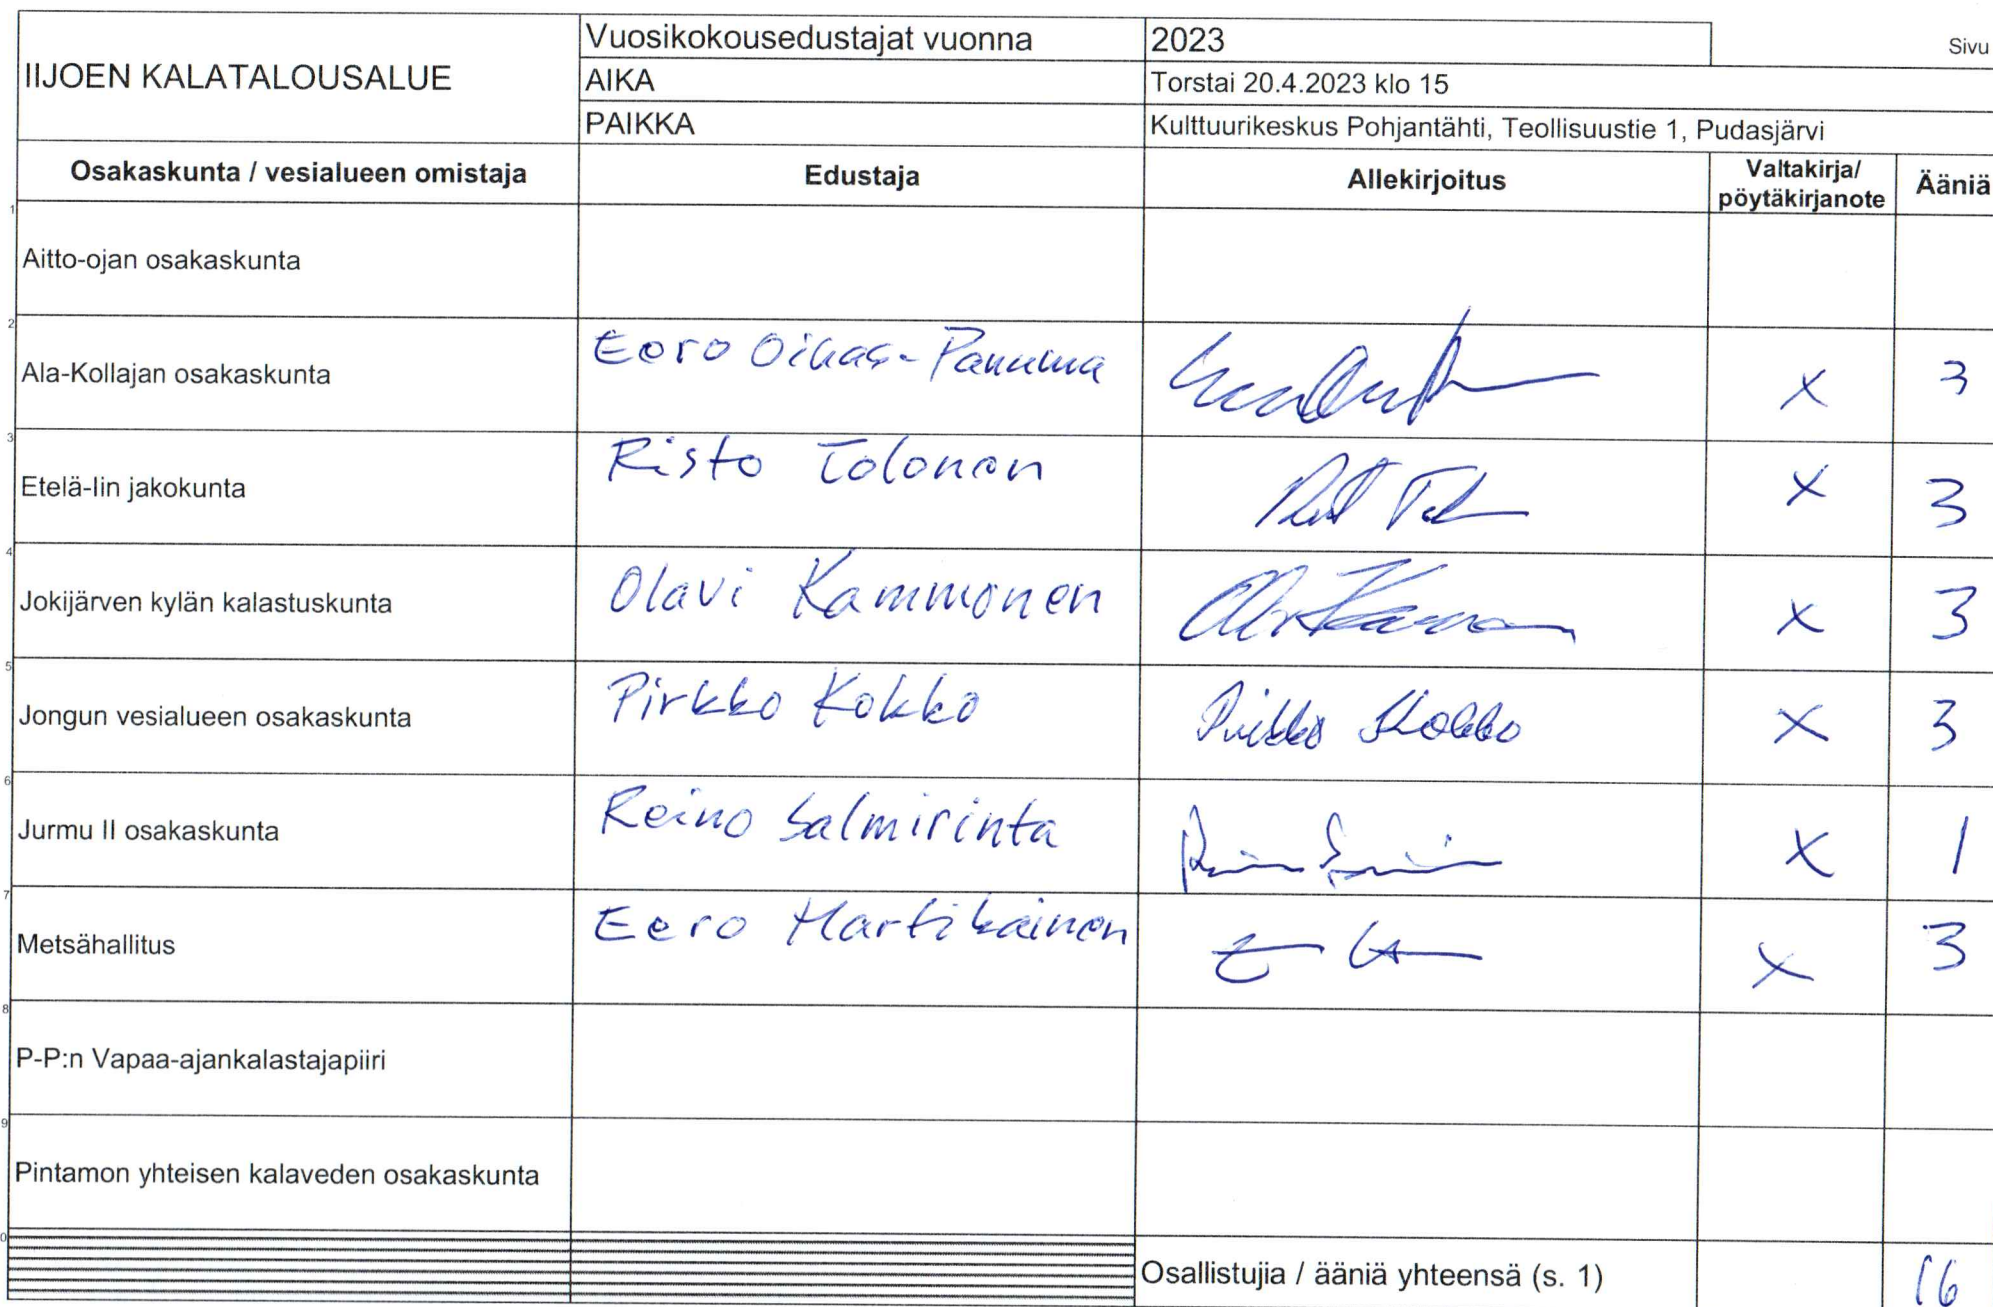 IIJOEN KALATALOUSALUE
Vuosikokousedustajat vuonna 2023 Sivu
AIKA Torstai 20.4.2023 klo 15
PAIKKA Kulttuurikeskus Pohjantähti, Teollisuustie 1, Pudasjärvi
Osakaskunta / vesialueen omistaja Edustaja Allekirjoitus Valtakirja/ pöytäkirjanote Ääniä
1 Aitto-ojan osakaskunta
2 Ala-Kollajan osakaskunta Eero Oikas-Panuma x 3
3 Etelä-Iin jakokunta Risto Tolonen x 3
4 Jokijärven kylän kalastuskunta Olavi Kammonen x 3
5 Jongun vesialueen osakaskunta Pirkko Kokko Pirkko Kokko x 3
6 Jurmu II osakaskunta Reino Salmirinta x 1
7 Metsähallitus Eero Hartikainen x 3
8 P-P:n Vapaa-ajankalastajapiiri
9 Pintamon yhteisen kalaveden osakaskunta
0 Osallistujia / ääniä yhteensä (s. 1) 16